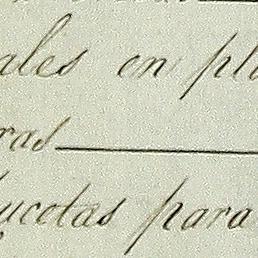 ales en pla
ras
ucotas para